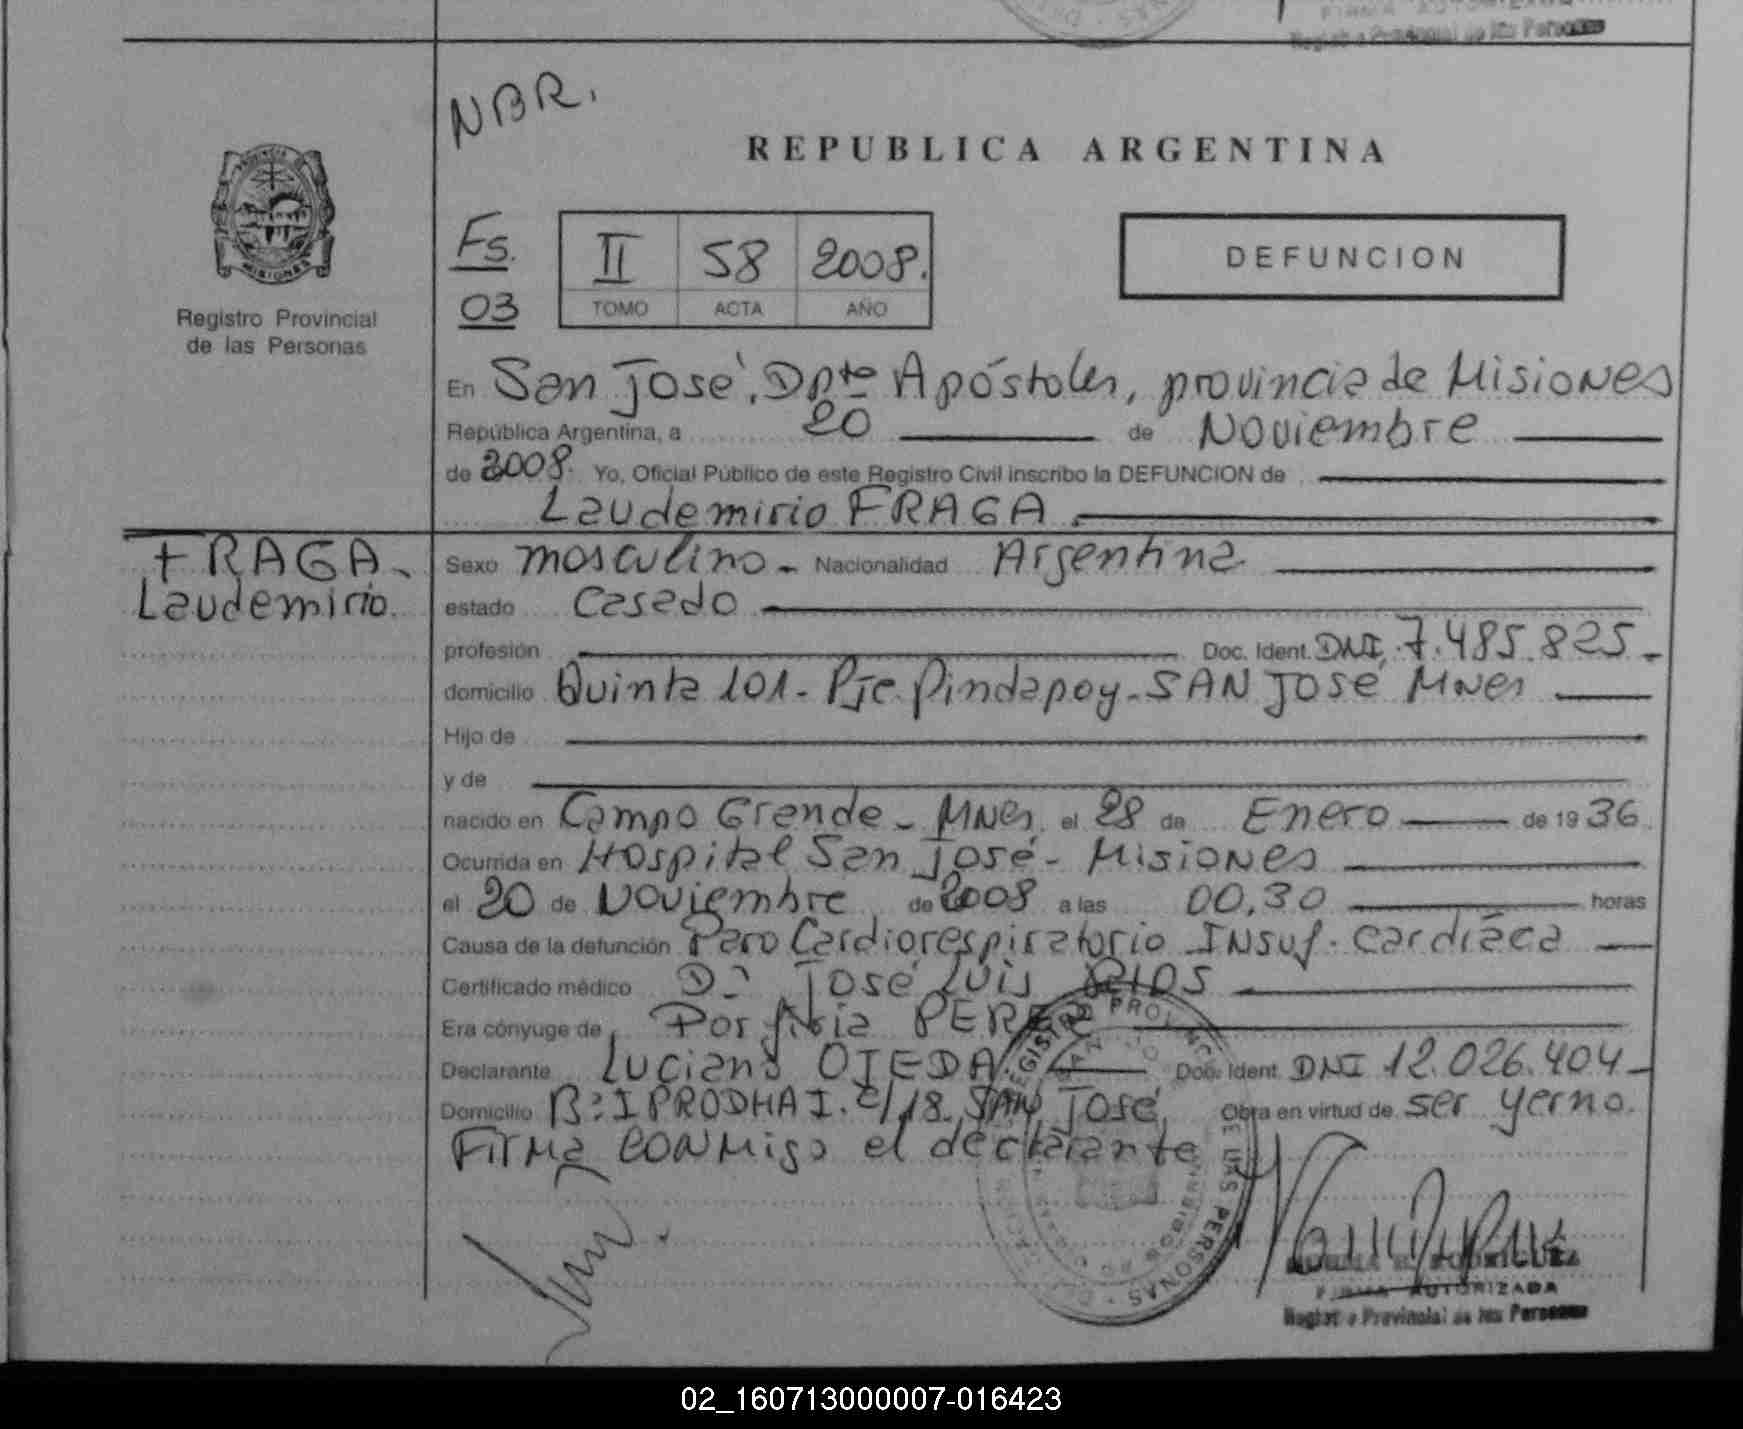 Registro Provincial de las Personas
NBR.
REPUBLICA ARGENTINA
MISIONES
Registro Provincial
de las Personas
Fs.
03
II 58 2008.
TOMO ACTA AÑO
DEFUNCION
En San José, Dpto Apóstoles, provincia de Misiones
República Argentina, a 20 de Noviembre
de 2008. Yo, Oficial Público de este Registro Civil inscribo la DEFUNCION de
Laudemirio FRAGA
FRAGA
Laudemirio.
Sexo masculino - Nacionalidad Argentina
estado Casado
profesión Doc. Ident. DNI, 7.485.825-
domicilio Quinta 101 - Pje. Pindapoy - SAN JOSE Mnes
Hijo de
y de
nacido en Campo Grande - Mnes, el 28 de Enero de 1936
Ocurrida en Hospital San José - Misiones
el 20 de Noviembre de 2008 a las 00,30 horas
Causa de la defunción Paro Cardiorespiratorio Insuf. cardíaca
Certificado médico Dr José Luis RIOS
Era cónyuge de Porfiria PEREZ
Declarante Luciano OJEDA. Doc. Ident. DNI 12.026.404-
Domicilio B: IPRODHAI. c/18. SAN José, Obra en virtud de ser yerno.
Firma conmigo el declarante
RODRIGUEZ
FIRMA AUTORIZADA
Registro Provincial de las Personas
02_160713000007-016423